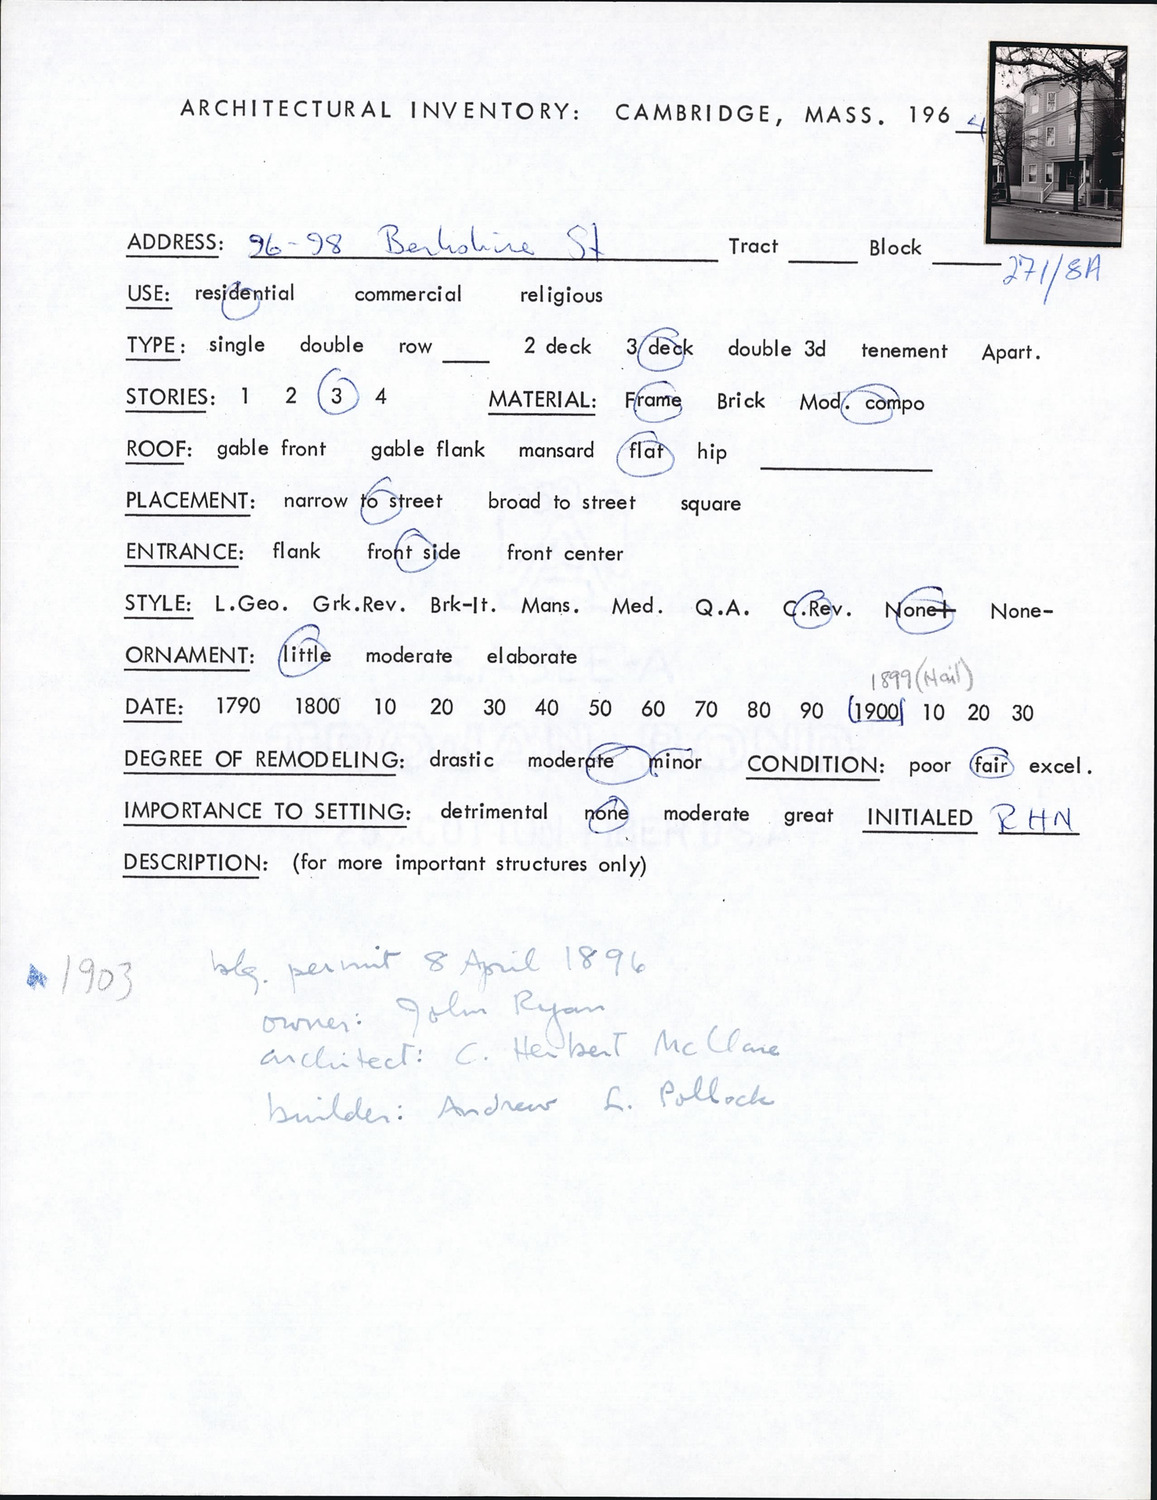 ARCHITECTURAL INVENTORY: CAMBRIDGE, MASS. 1964
ADDRESS: 96-98 Berkshire St Tract ____ Block ____
271/8A
USE: residential commercial religious
TYPE: single double row ___ 2 deck 3 deck double 3d tenement Apart.
STORIES: 1 2 3 4 MATERIAL: Frame Brick Mod. compo
ROOF: gable front gable flank mansard flat hip ____
PLACEMENT: narrow to street broad to street square
ENTRANCE: flank front side front center
STYLE: L.Geo. Grk.Rev. Brk-It. Mans. Med. Q.A. C.Rev. None+ None-
ORNAMENT: little moderate elaborate
1899 (Nail)
DATE: 1790 1800 10 20 30 40 50 60 70 80 90 1900 10 20 30
DEGREE OF REMODELING: drastic moderate minor CONDITION: poor fair excel.
IMPORTANCE TO SETTING: detrimental none moderate great INITIALED RHN
DESCRIPTION: (for more important structures only)
1903 blg. permit 8 April 1896
owner: John Ryan
architect: C. Herbert McClare
builder: Andrew L. Pollock